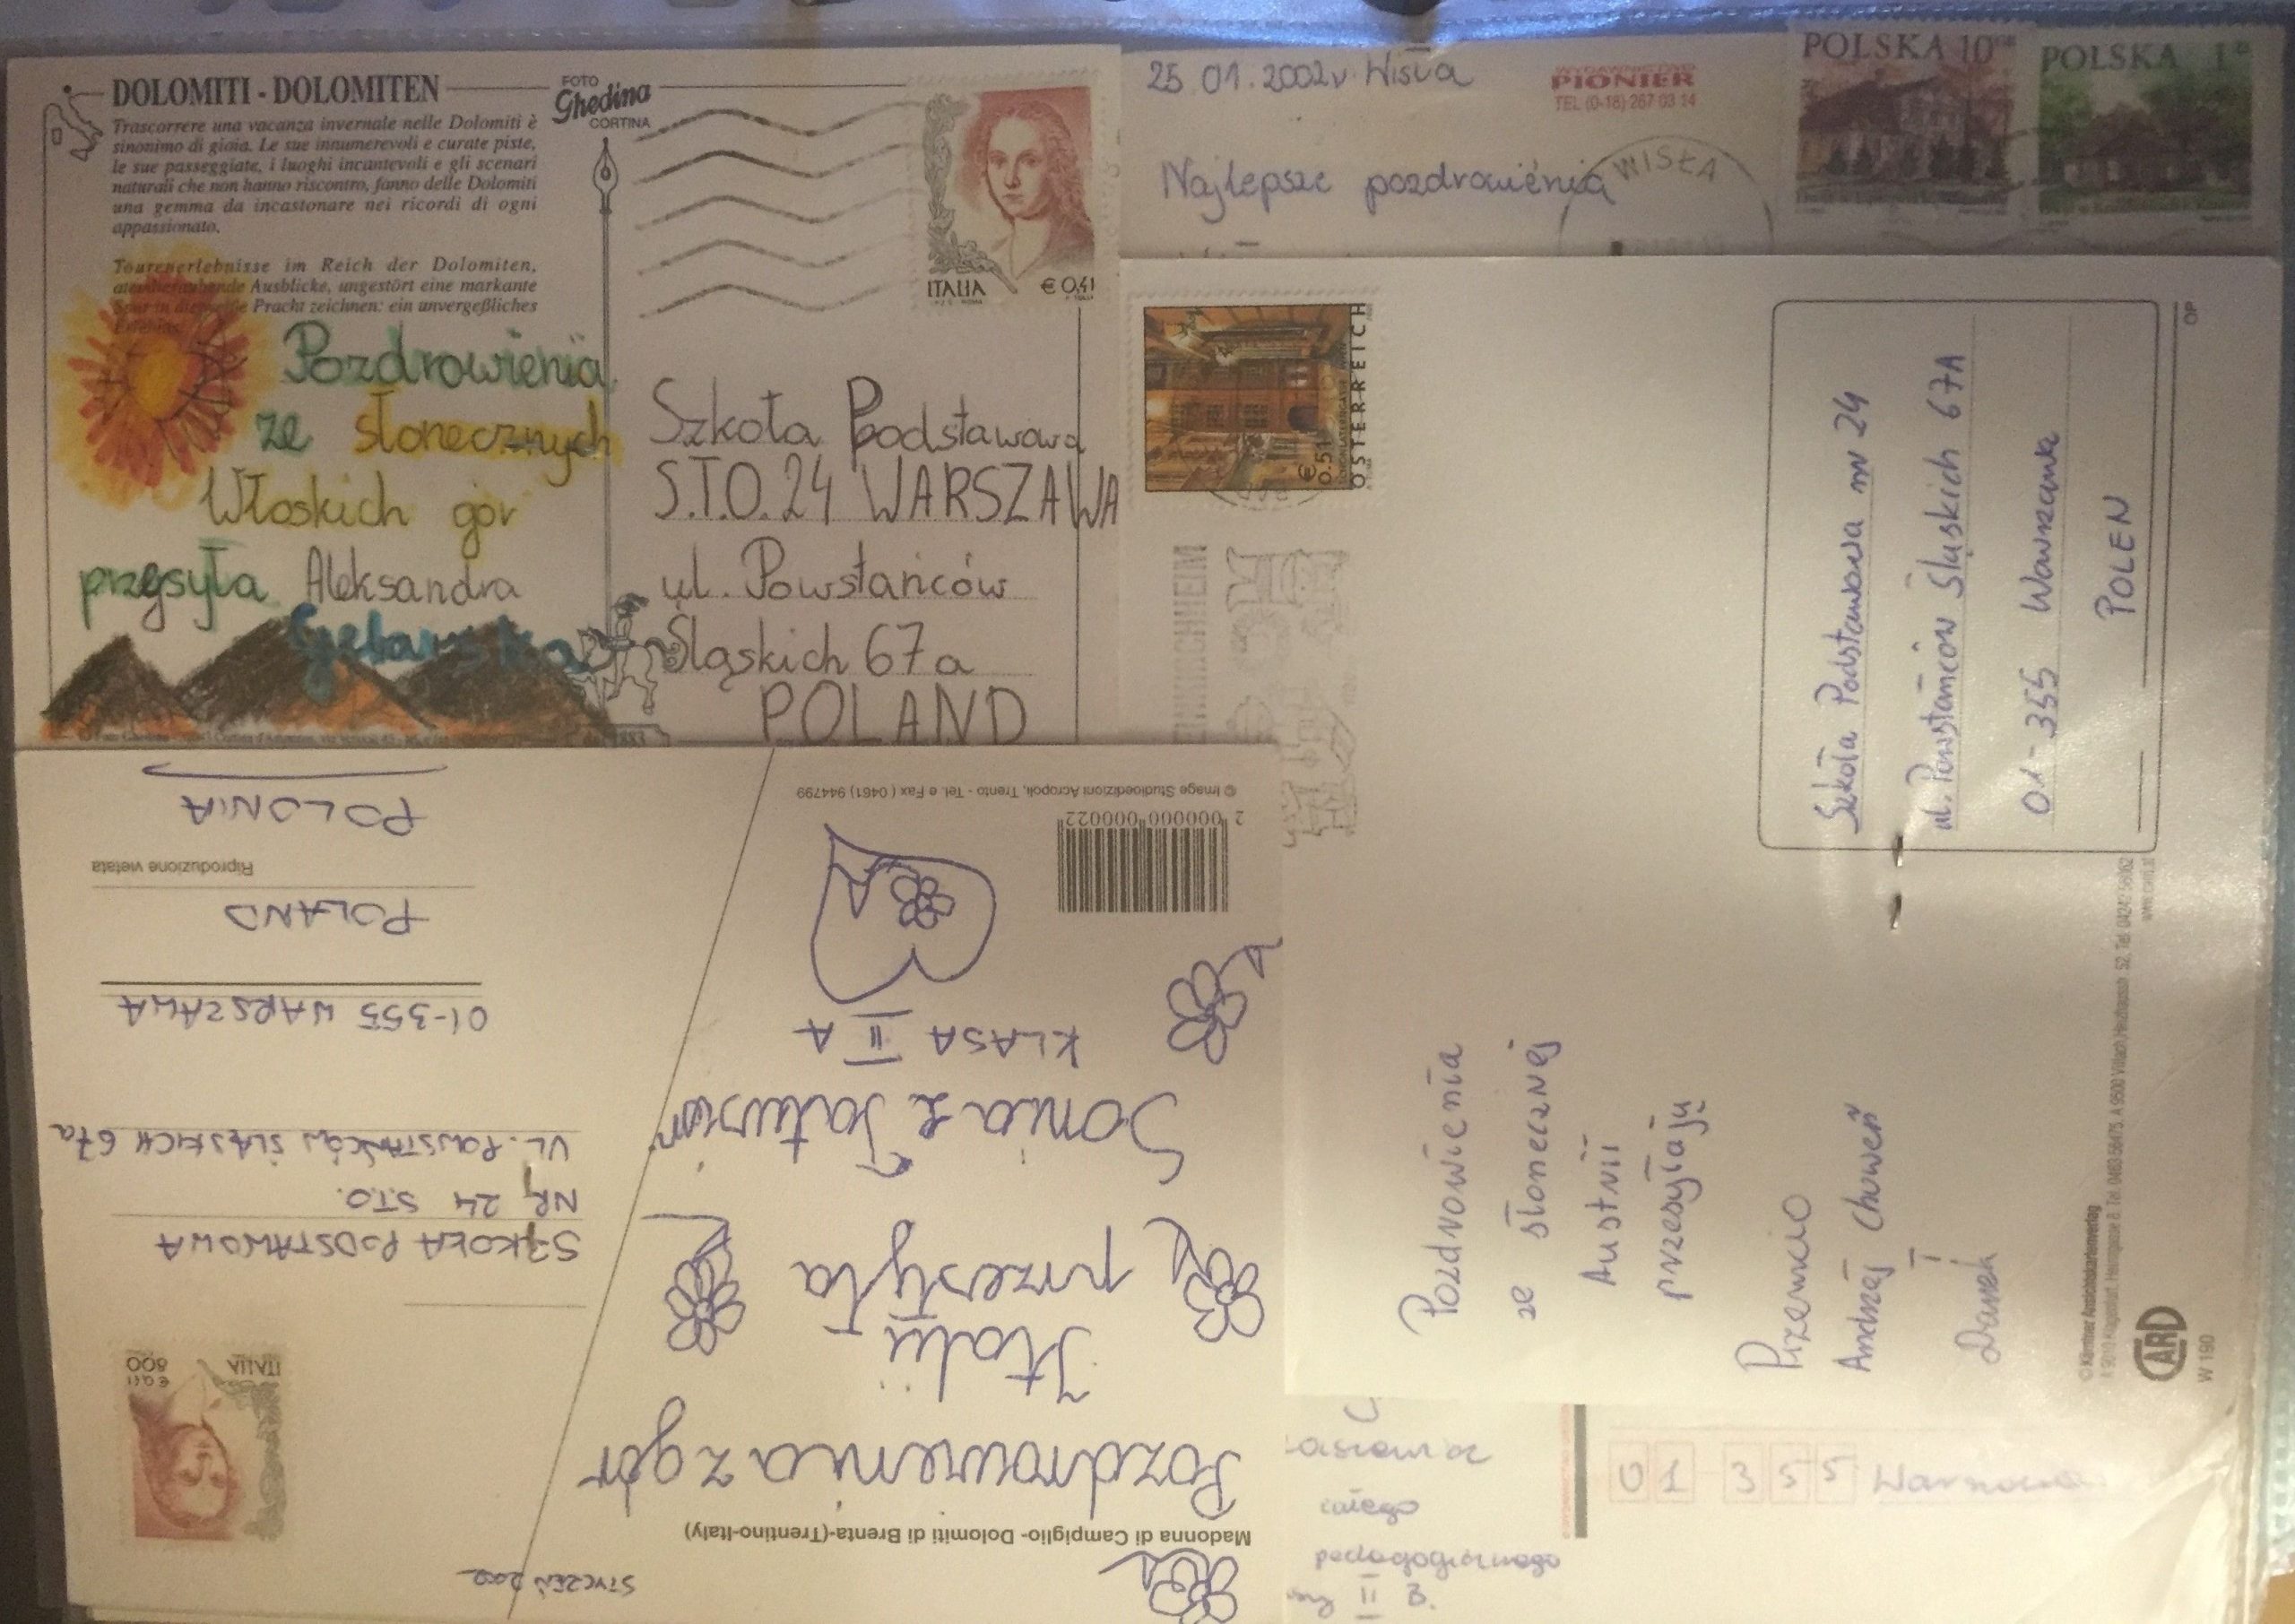 DOLOMITI - DOLOMITEN
Trascorrere una vacanza invernale nelle Dolomiti è
sinonimo di gioia. Le sue innumerevoli e curate piste,
le sue passeggiate, i luoghi incantevoli e gli scenari
naturali che non hanno riscontro, fanno delle Dolomiti
una gemma da incastonare nei ricordi di ogni
appassionato.
Tourenerlebnisse im Reich der Dolomiten,
atemberaubende Ausblicke, ungestört eine markante
Spur in die weiße Pracht zeichnen: ein unvergeßliches
Erlebnis.
FOTO
Ghedina
CORTINA
ITALIA € 0,41
Pozdrowienia
ze słonecznych
Włoskich gór
przesyła Aleksandra
Szkoła Podstawowa
S.T.O. 24 WARSZAWA
ul. Powstańców
Śląskich 67a
POLAND
dal 1883
25.01.2002r. Wisła
WYDAWNICTWO
PIONIER
TEL (0-18) 267 03 14
Najlepsze pozdrowienia
WISŁA
POLSKA 10
POLSKA 1
ÖSTERREICH
€ 0.51
Szkoła Podstawowa nr 24
ul. Powstańców Śląskich 67A
01-355 Warszawa
POLEN
OP
Pozdrowienia
ze słonecznej
Austrii
przesyłają
Przemcio
Andrzej Choweń
i
Darek
© Kärntner Ansichtskartenverlag
CARD
W 190
STYCZEŃ 2002
Madonna di Campiglio- Dolomiti di Brenta-(Trentino-Italy)
Pozdrowienia z gór
Italii
przesyła
Sonia z Tatusiem
KLASA II A
2 000000 000022
© Image Studioedizioni Acropoli, Trento - Tel. e Fax ( 0461) 944799
ITALIA
800
€ 0,41
SZKOŁA PODSTAWOWA
NR 24 STO.
UL. POWSTAŃCÓW ŚLĄSKICH 67a
01-355 WARSZAWA
POLAND
Riproduzione vietata
POLONIA
całego
pedagogicznego
II B.
01 355 Warszawa